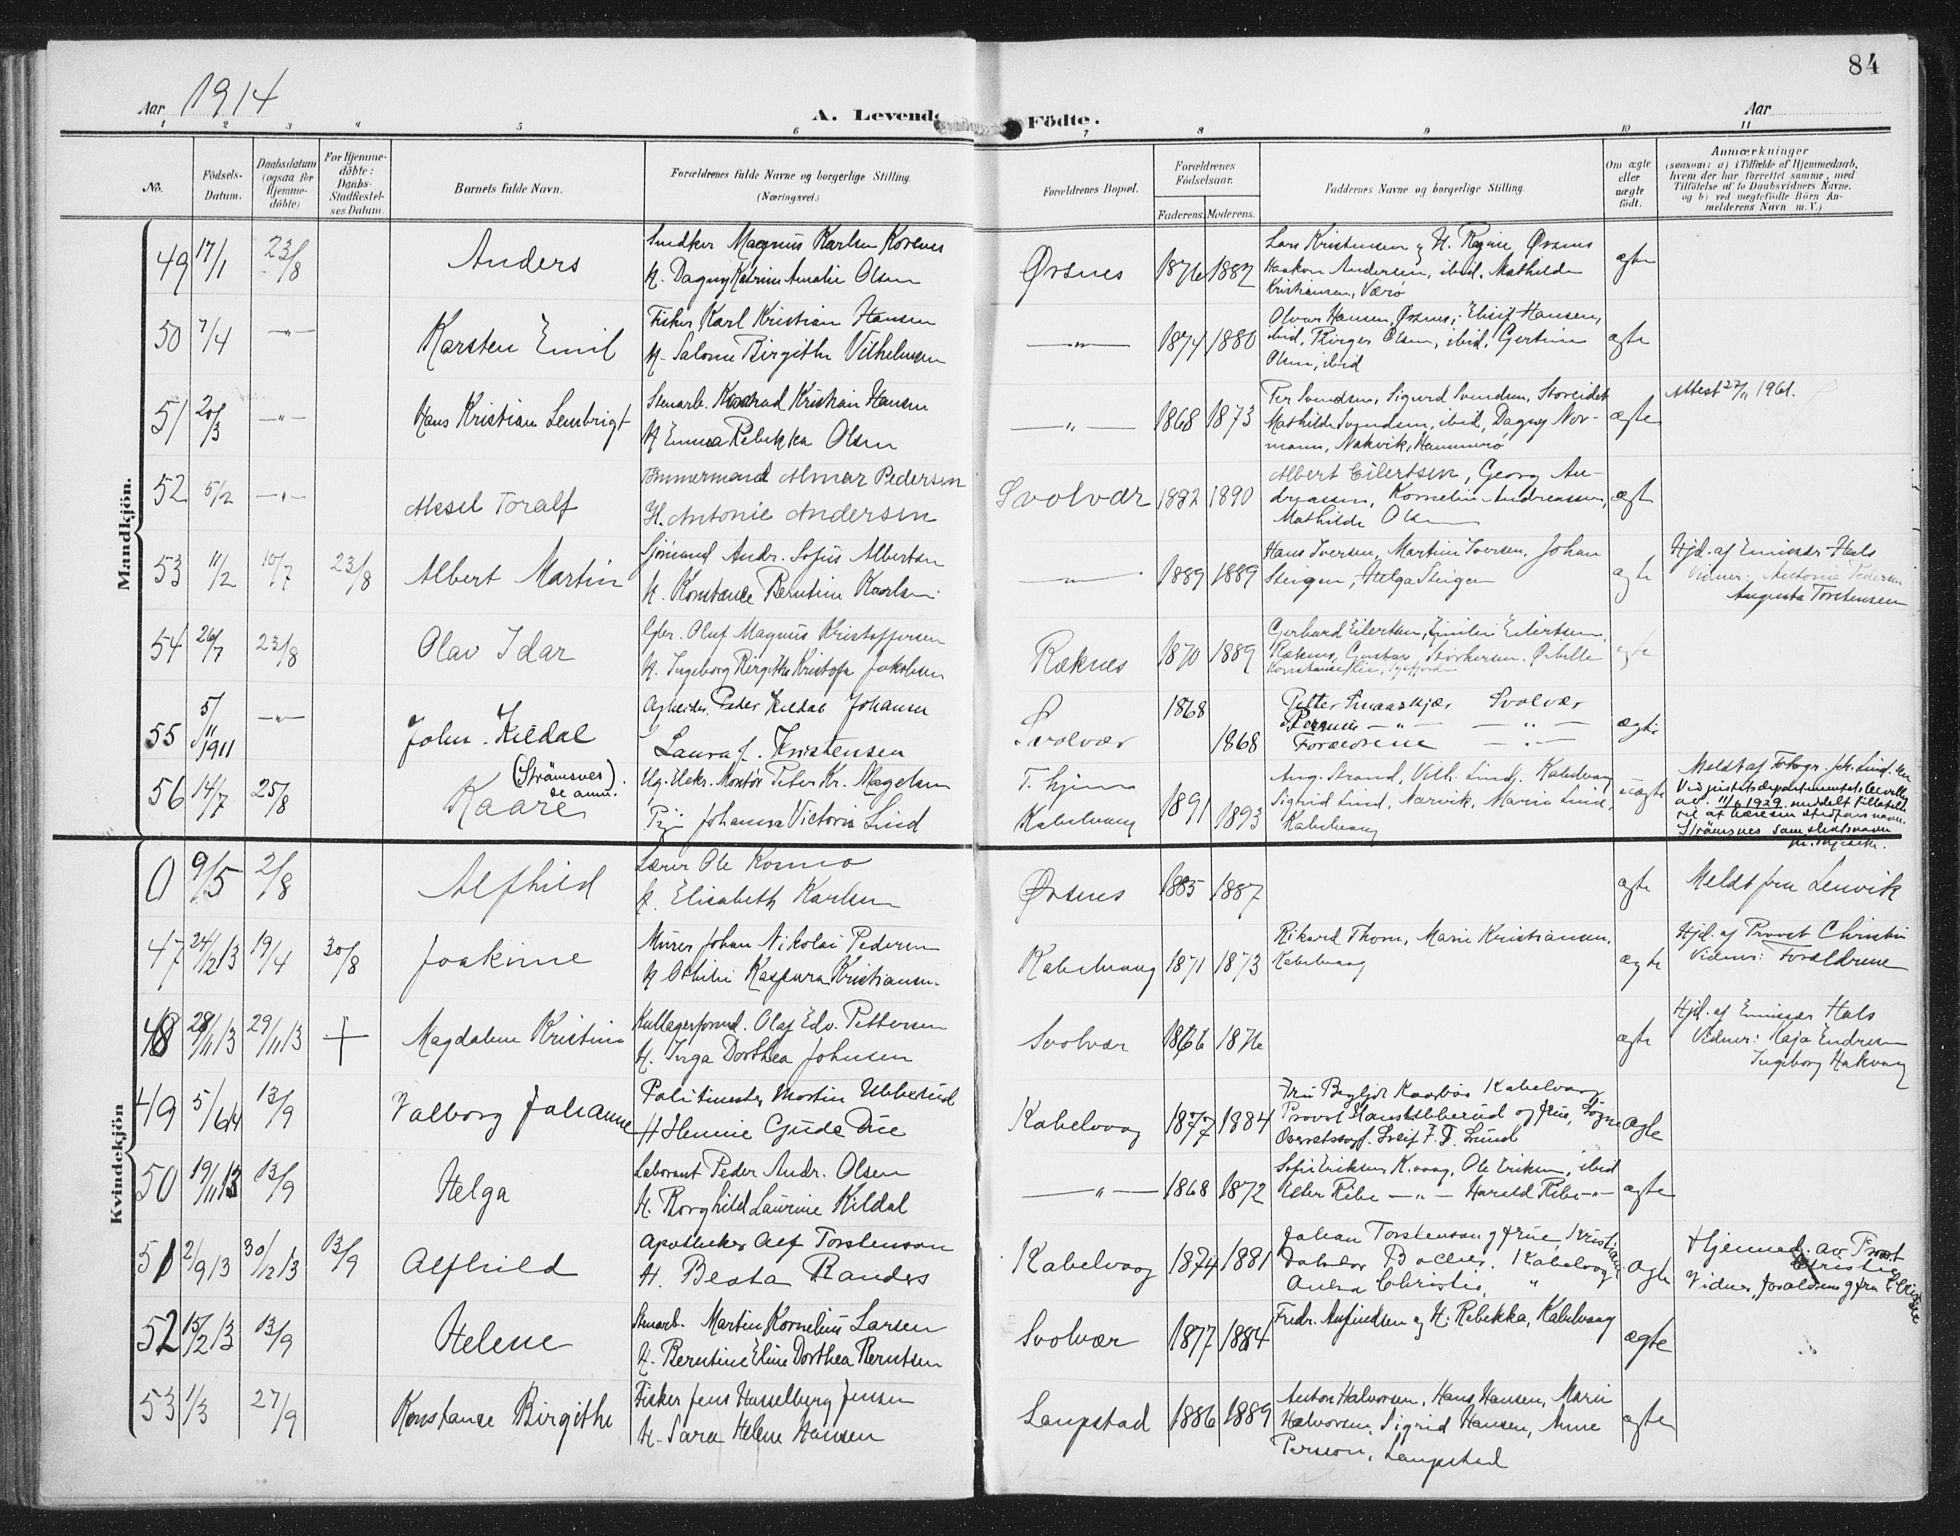 84
Aar 1914
A. Levende Födte.
Aar
1 2 3 4 5 6 7 8 9 10 11
No.
Födsels-Datum.
Daabsdatum (ogsaa for Hjemme-döbte)
For Hjemme-döbte: Daabs-Stadfæstel-ses Datum.
Barnets fulde Navn.
Forældrenes fulde Navne og borgerlige Stilling. (Næringsvei.)
Forældrenes Bopæl.
Forældrenes Födselsaar.
Faderens. Moderens.
Faddernes Navne og borgerlige Stilling.
Om ægte eller uægte födt.
Anmærkninger
(saasom: a) i Tilfælde af Hjemmedaab,
hvem der har forrettet samme, med
Tilföielse af to Daabsvidners Navne,
og b) ved uegtefödte Börn An-
melderens Navn m. V.)
Mandkjön.
49 17/1 23/8 Anders
Snedker Magnus Karlsen
H. Dagny Katrine Amalie Olsen
Ørsnes 1876 1882
Lars Kristensen og H. Regine, Ørsnes
Haakon Andersen, ibid. Mathilde
Kristiansen, Værø
ægte
50 7/4 —„— Karsten Emil
Fisker Karl Kristian Hansen
H. Salome Birgithe Vilhelmsen
—„— 1874 1880
Oluar Hansen, Ørsnes, Elisif Hansen,
ibid, Birger Olsen, ibid, Gertine
Olsen, ibid
ægte
51 20/3 —„— Hans Kristian Lembrigt
Stenarb. Konrad Kristian Hansen
H. Emma Rebekka Olsen
—„— 1868 1873
Per Svendsen, Sigurd Svendsen, Storeidet
Mathilde Svendsen, ibid, Dagny Nor-
mann, Nakvik, Hammerø
ægte
Attest 27/11 1961.
52 5/2 —„— Aksel Toralf
Tömmermand Almar Pedersen
H. Antonie Andersen
Svolvær 1882 1890
Albert Eilertsen, Georg An-
dreassen, Kornelie Andreassen,
Mathilde Olsen
ægte
53 11/2 10/7 23/8 Albert Martin
Sjömand Andr. Sofus Albertsen
H. Konstance Berntine Karlsen
—„— 1889 1889
Hans Iversen, Martin Iversen, Johan
Steigen, Helga Steigen
ægte
Hjd. af Emissær Hals
Vidner: Antonie Pedersen
Augusta Torstensen
54 26/7 23/8 Olav Idar
Gbr. Oluf Magnus Kristoffersen
H. Ingeborg Birgithe Kristofa Jakobsen
Ræknes 1870 1889
Gerhard Eilertsen, Emilie Eilertsen,
Ræknes, Gustav
ægte
55 5/11 1911 —„— John Kildal
Arbeider Peder Kildal Johansen
Laura J. Kristensen
Svolvær 1868 1868
Petter Smaaskjær Svolvær
—„— —„—
Forældrene —„—
ægte
56 14/7 25/8 (Strömsnes) Kaare
Ug. Elekr. Montör Peter Kr. Magelsen
Pige Johanna Victoria Lind
T. hjem
Kabelvaag 1891 1893
Aug. Strand, Vilh. Lind, Kabelvaag
Sigrid Lind, Narvik, Marie Lind,
Kabelvaag
uægte
Meldt af Fotogr. Joh. Lind.
Ved justitsdepartementets bevilling
av 11/6 1929 meddelt tilladelse
til at bære sin stedfars navn
Strömsnes som slektsnavn
Kvindekjön
0 9/5 2/8 Alfhild
Lærer Ole Kornmo
H. Elisabeth Karlsen
Ørsnes 1885 1887
ægte
Meldt fra Lenvik
47 24/12 13 19/4 30/8 Joakime
Murer Johan Nikolai Pedersen
H. Othilie Kaspara Kristiansen
Kabelvaag 1871 1873
Rikard Thom, Marie Kristiansen,
Kabelvaag
ægte
Hjd. af Provst Christie
Vidner: Forældrene
48 28/11 13 29/11 13 + Magdalene Kristine
Kullagerformd. Olaf Edv. Pettersen
H. Inga Dorthea Johnsen
Svolvær 1866 1876
ægte
Hjd. af Emissær Hals
Vidner: Kaja Endresen
Ingeborg Hakvaag
49 5/6 14 13/9 Valborg Johanne
Politimester Morten Ubberud
H. Hennie Gjude Due
Kabelvaag 1877 1884
Fru Bergljot Kaarbøe Kabelvaag,
Provst Hans Ubberud og frue, Sogne
Overretssagf. Leif F. F. Lund
ægte
50 19/11 13 13/9 Helga
Laborant Peder Andr. Olsen
H. Borghild Laurine Kildal
—„— 1868 1872
Sofie Eriksen, K.vaag, Ole Eriksen, ibid
Ribe —„— Harald Ribe —„—
ægte
51 2/9 13 30/12 13 13/9 Alfhild
Apotheker Alf Torstenson
H. Beata Randers
Kabelvaag 1874 1881
Johan Torstenson og frue, Kristiania
Kabelvaag
Christie, „
ægte
Hjemmed. av Provst
Christie
Vidner, forældrene og fru Christie
52 15/2 13 13/9 Helene
Stenarb. Martin Kornelius Larsen
H. Berntine Eline Dorthea Berntsen
Svolvær 1877 1884
Fredr. Anfindsen og H. Rebekka, Kabelvaag
ægte
53 1/3 27/9 Konstance Birgithe
Fisker Jens Hasselberg Jensen
H. Sara Helene Hansen
Laupstad 1886 1889
Anton Halvorsen, Hans Hansen, Marie
Halvorsen, Sigrid Hansen, Anne
Persson, Laupstad
ægte